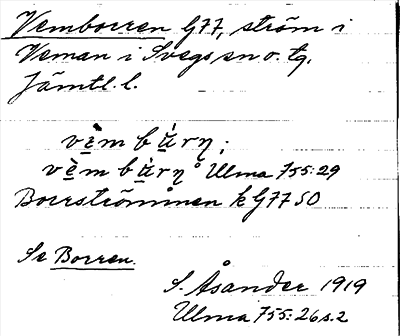 Vemborren G77, ström i
Veman i Svegs sn o. tg.
Jämtl. l.
vèm bùrn;
vèm bùrn Ulma 755:29
Borrströmmen k G77 SO
Se Borren.
S. Åsander 1919
Ulma 755:26 s. 2